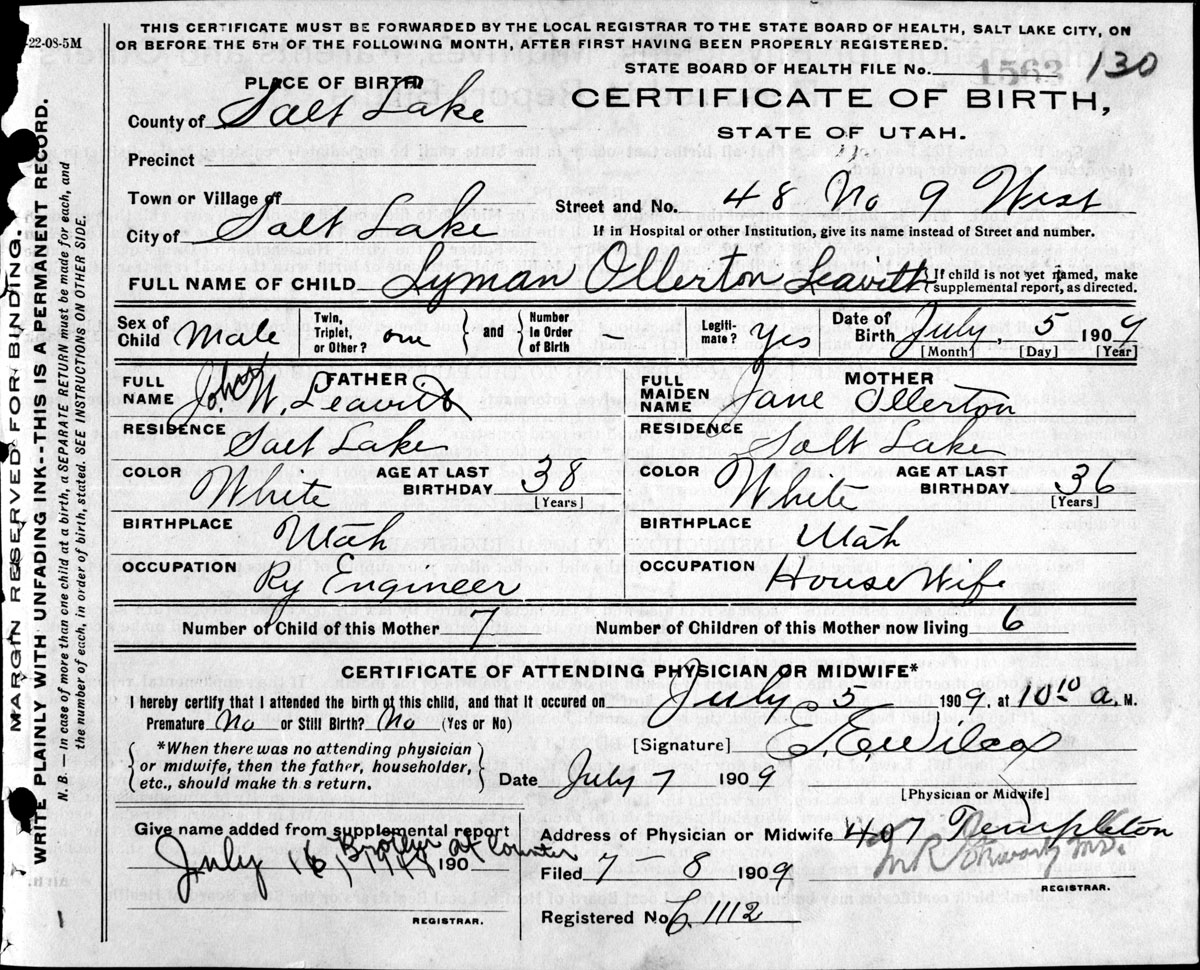 THIS CERTIFICATE MUST BE FORWARDED BY THE LOCAL REGISTRAR TO THE STATE BOARD OF HEALTH, SALT LAKE CITY, ON
OR BEFORE THE 5TH OF THE FOLLOWING MONTH, AFTER FIRST HAVING BEEN PROPERLY REGISTERED.
-22-08-5M
STATE BOARD OF HEALTH FILE No. 1563 130
PLACE OF BIRTH
CERTIFICATE OF BIRTH,
STATE OF UTAH.
County of Salt Lake
Precinct
Town or Village of
Street and No. 48 No 9 West
City of Salt Lake
If in Hospital or other Institution, give its name instead of Street and number.
FULL NAME OF CHILD Lyman Ollerton Leavitt { If child is not yet named, make supplemental report, as directed.
Sex of Child Male Twin, Triplet, or Other? one } and { Number in Order of Birth Legiti-mate? yes Date of Birth July 5 1909
[Month] [Day] [Year]
FATHER
FULL NAME John W. Leavitt
MOTHER
FULL MAIDEN NAME Jane Ollerton
RESIDENCE Salt Lake
RESIDENCE Salt Lake
COLOR White AGE AT LAST BIRTHDAY 38 [Years]
COLOR White AGE AT LAST BIRTHDAY 36 [Years]
BIRTHPLACE Utah
BIRTHPLACE Utah
OCCUPATION Ry Engineer
OCCUPATION House Wife
Number of Child of this Mother 7 Number of Children of this Mother now living 6
CERTIFICATE OF ATTENDING PHYSICIAN OR MIDWIFE*
I hereby certify that I attended the birth of this child, and that it occurred on July 5 1909, at 10 10 a. M.
Premature No or Still Birth? No (Yes or No)
*When there was no attending physician
or midwife, then the father, householder,
etc., should make th s return.
[Signature] Wilcox
Date July 7 1909
[Physician or Midwife]
Give name added from supplemental report
Brother at Counter
July 16, 190
REGISTRAR.
Address of Physician or Midwife 407 Templeton
Filed 7 - 8 1909
M.D.
REGISTRAR.
Registered No. 1112
MARGIN RESERVED FOR BINDING.
WRITE PLAINLY WITH UNFADING INK--THIS IS A PERMANENT RECORD.
N. B. — In case of more than one child at a birth, a SEPARATE RETURN must be made for each, and
the number of each, in order of birth, stated. SEE INSTRUCTIONS ON OTHER SIDE.